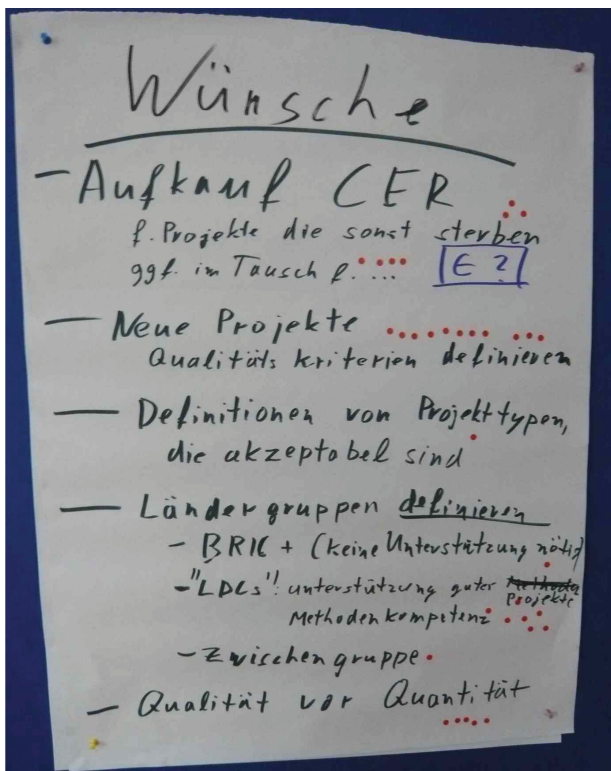 Wünsche
- Aufkauf CER
f. Projekte die sonst sterben
ggf. im Tausch f. ... [€ ?]
- Neue Projekte
Qualitätskriterien definieren
- Definitionen von Projekttypen,
die akzeptabel sind
- Ländergruppen definieren
- BRIC + (keine Unterstützung nötig)
- "LDCs": unterstützung guter Projekte
Methodenkompetenz
- Zwischengruppe
- Qualität vor Quantität